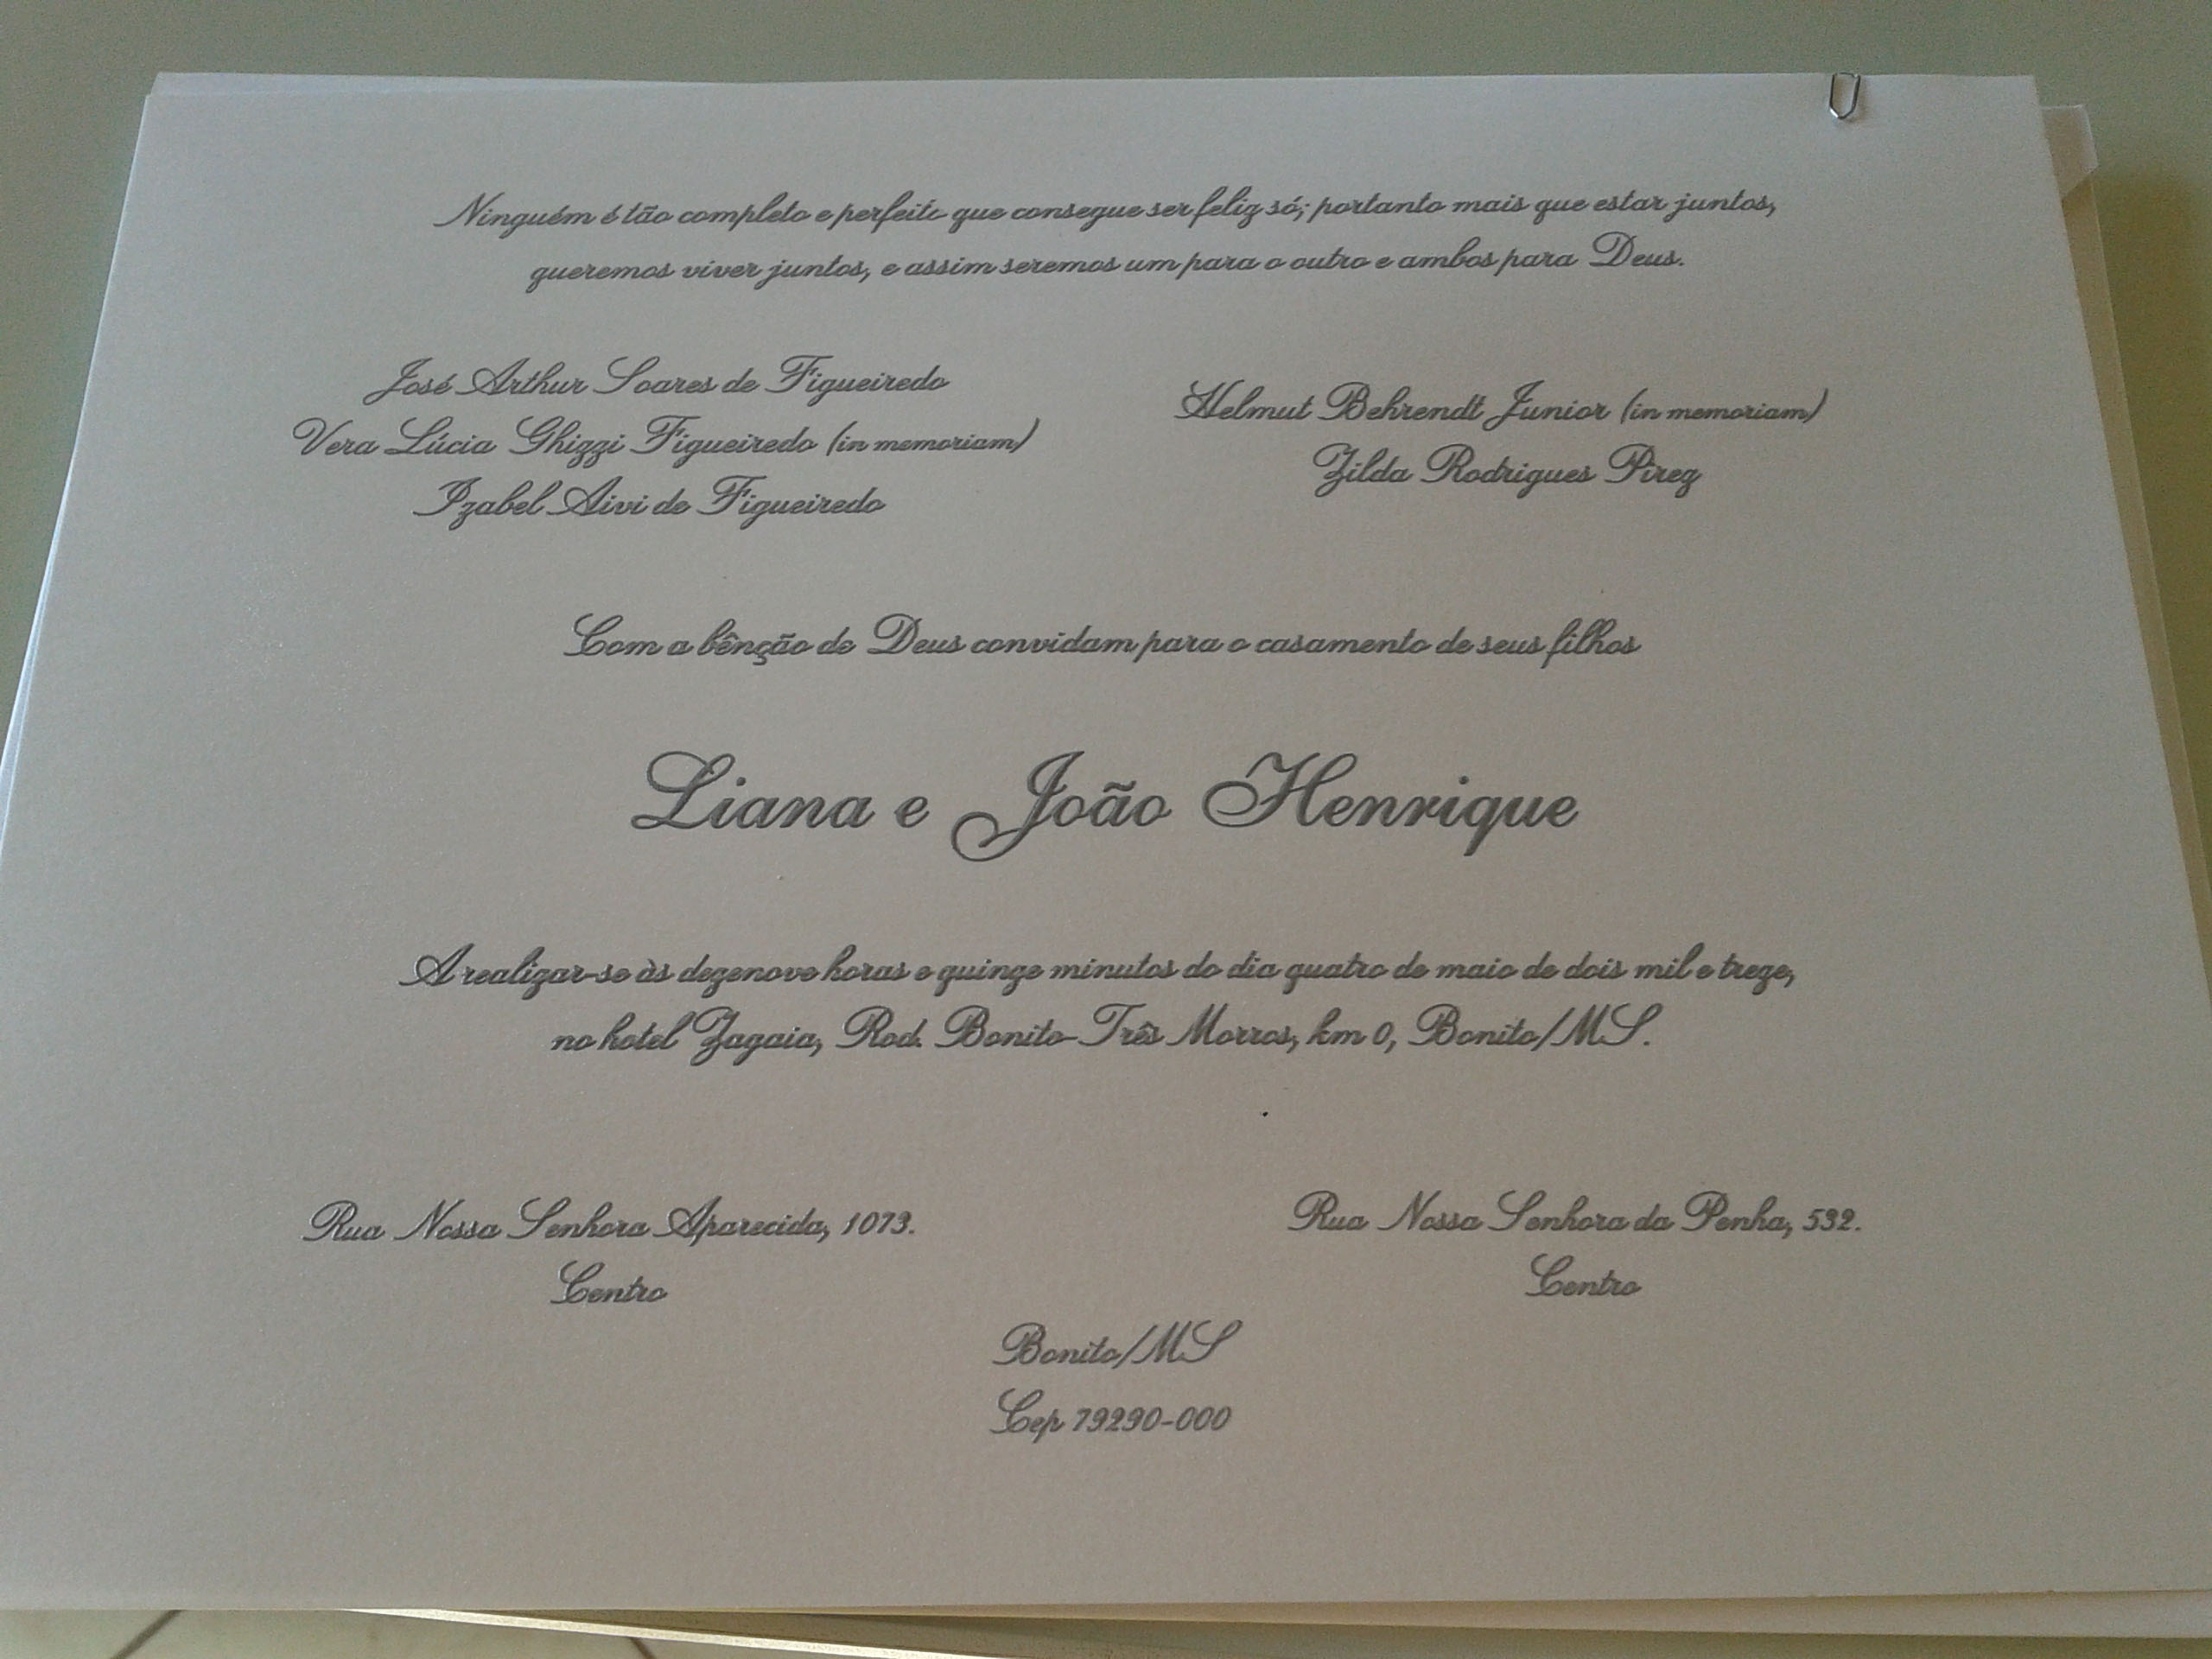 Ninguém é tão completo e perfeito que consegue ser feliz só; portanto mais que estar juntos,
queremos viver juntos, e assim seremos um para o outro e ambos para Deus.
José Arthur Soares de Figueiredo
Vera Lúcia Ghizzi Figueiredo (in memoriam)
Izabel Aivi de Figueiredo
Helmut Behrendt Junior (in memoriam)
Zilda Rodrigues Pirez
Com a bênção de Deus convidam para o casamento de seus filhos
Liana e João Henrique
A realizar-se às dezenove horas e quinze minutos do dia quatro de maio de dois mil e treze,
no hotel Zagaia, Rod. Bonito-Três Morros, km 0, Bonito/MS.
Rua Nossa Senhora Aparecida, 1073.
Centro
Rua Nossa Senhora da Penha, 532.
Centro
Bonito/MS
Cep 79290-000